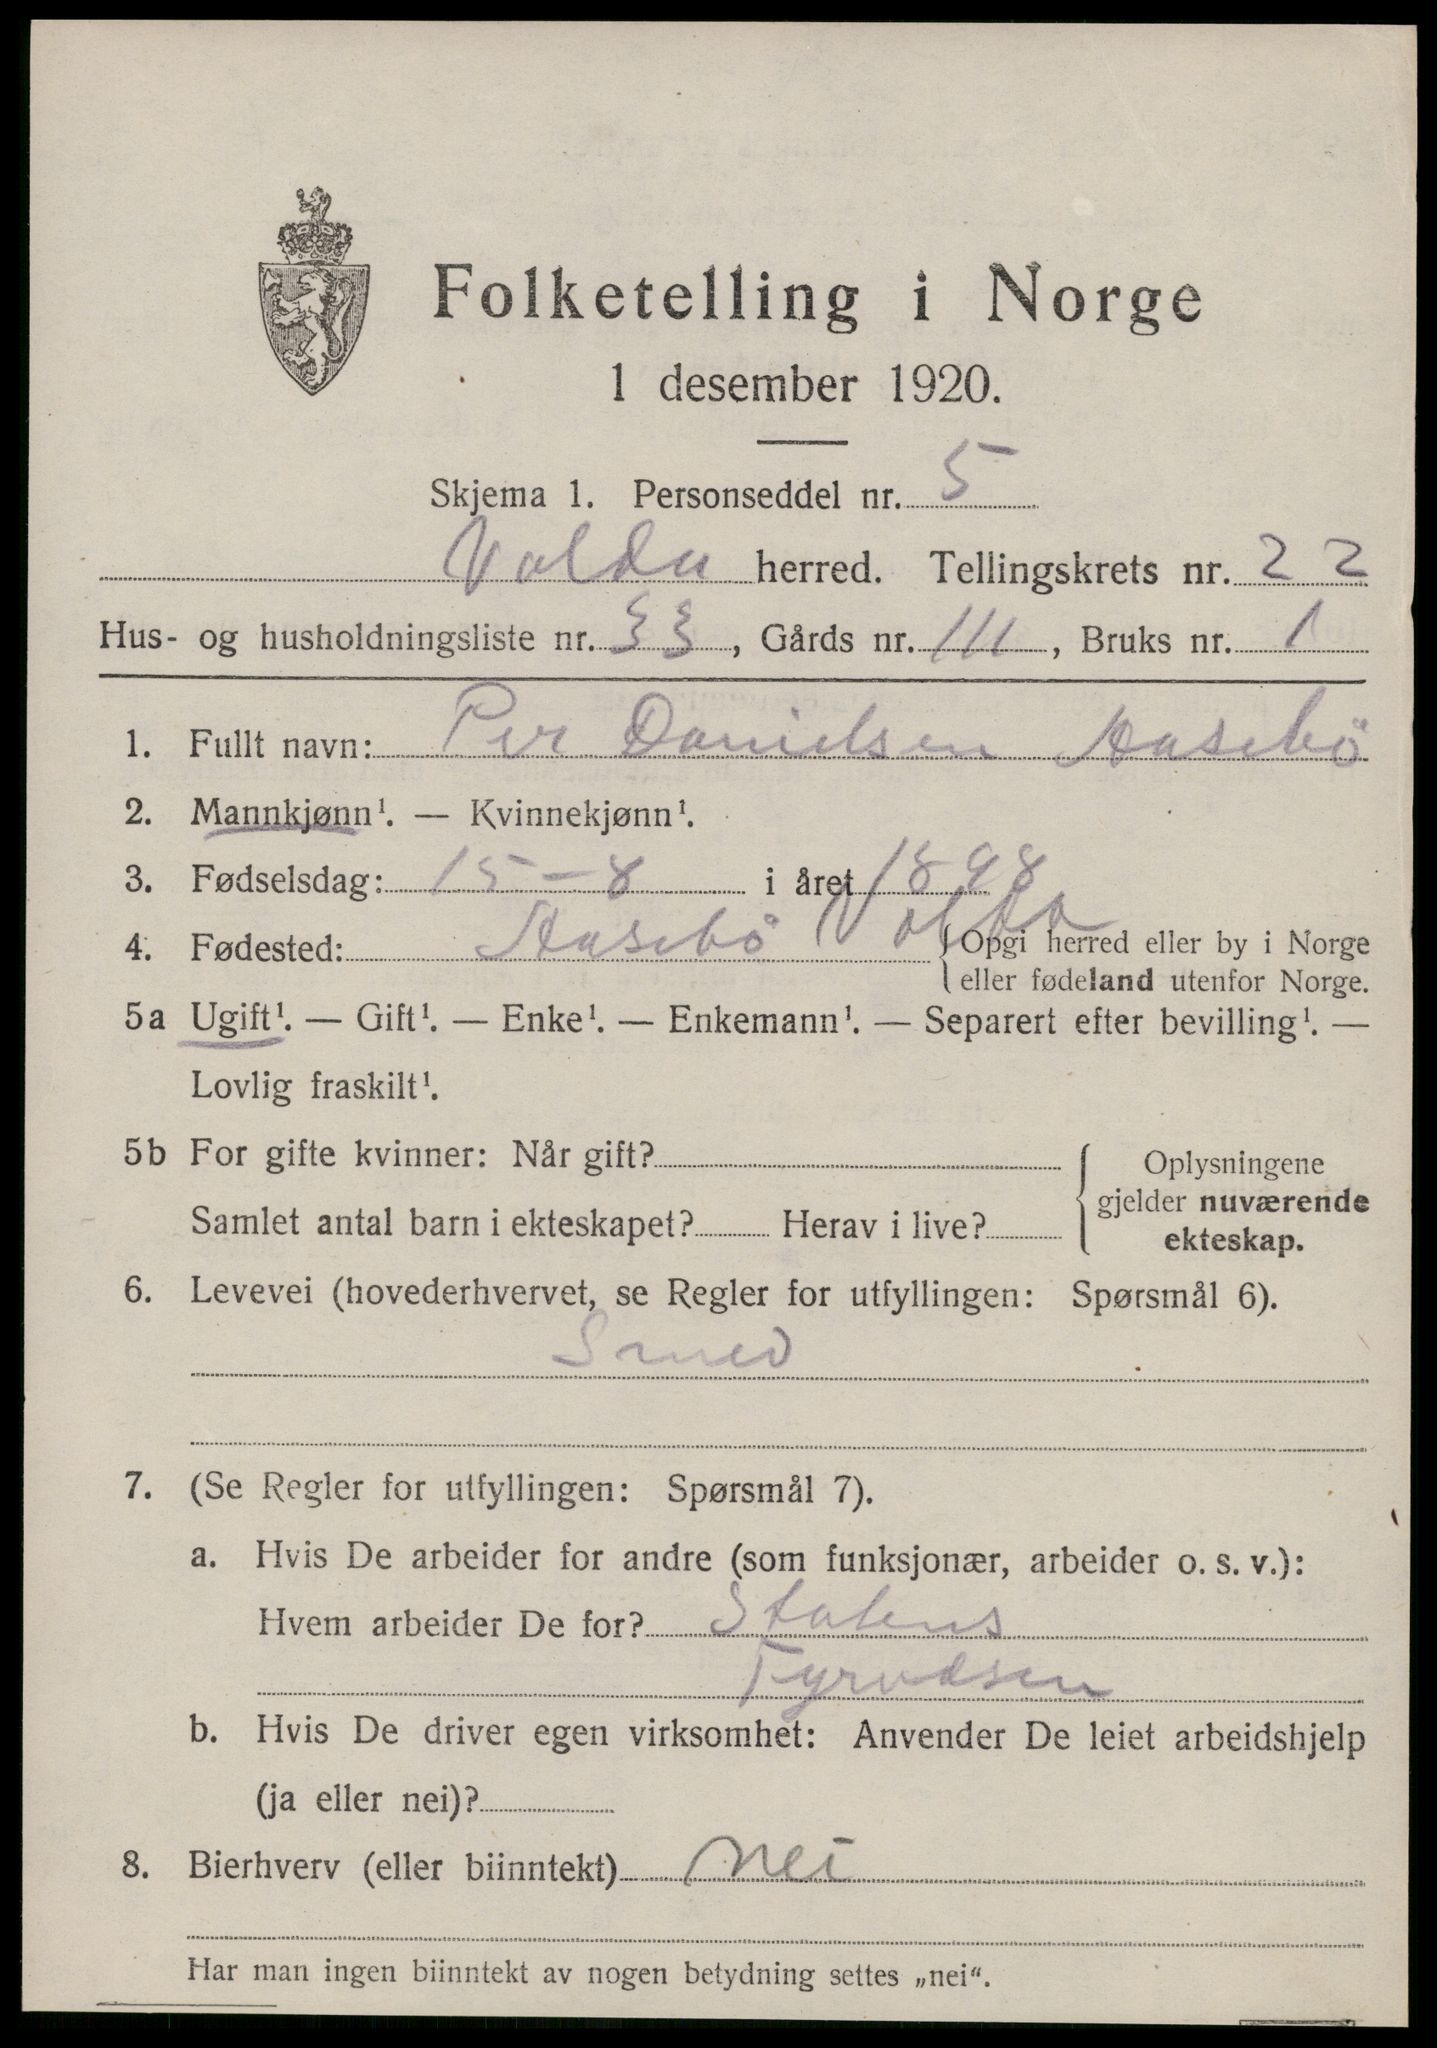 Folketelling i Norge
1 desember 1920.
Skjema 1. Personseddel nr. 5
Volda herred. Tellingskrets nr. 22
Hus- og husholdningsliste nr. 33, Gårds nr. 111, Bruks nr. 1
1. Fullt navn: Per Danielsen Aasebö
2. Mannkjønn¹. — Kvinnekjønn¹.
3. Fødselsdag: 15-8 i året 1898
4. Fødested: Aasebö Volda {Opgi herred eller by i Norge
eller fødeland utenfor Norge.
5a Ugift¹. — Gift¹. — Enke¹. — Enkemann¹. — Separert efter bevilling¹. —
Lovlig fraskilt¹.
5b For gifte kvinner: Når gift? { Oplysningene
gjelder nuværende
Samlet antal barn i ekteskapet? Herav i live?
ekteskap.
6. Levevei (hovederhvervet, se Regler for utfyllingen: Spørsmål 6).
Smed
7. (Se Regler for utfyllingen: Spørsmål 7).
a. Hvis De arbeider for andre (som funksjonær, arbeider o. s. v.):
Hvem arbeider De for? Statens
Fyrvæsen
b. Hvis De driver egen virksomhet: Anvender De leiet arbeidshjelp
(ja eller nei)?
8. Bierhverv (eller biinntekt) nei
Har man ingen biinntekt av nogen betydning settes „nei“.